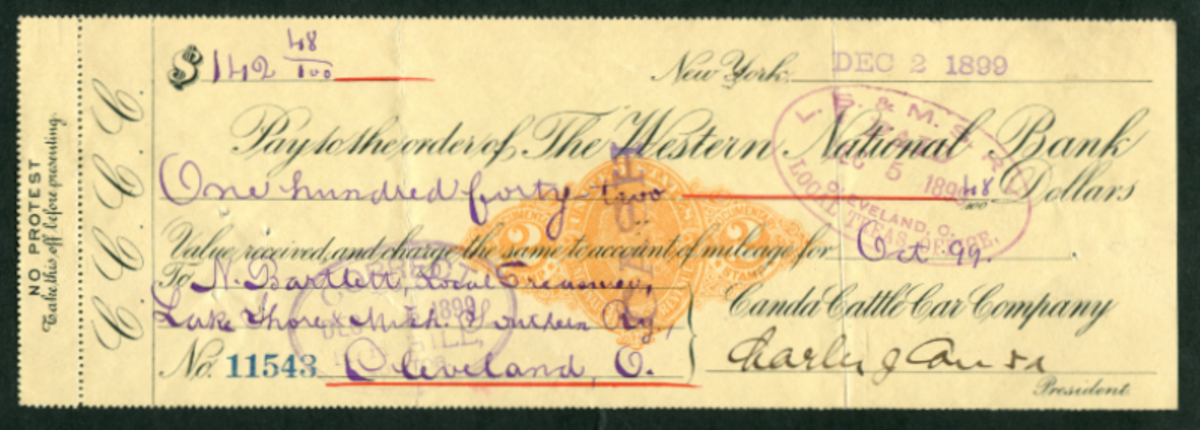 NO PROTEST
Take this off before presenting.
C. C. C. C.
$ 142 48/100
New York, DEC 2 1899
Pay to the order of The Western National Bank
One hundred forty-two 48/100 Dollars
Value received, and charge the same to account of mileage for Oct 99.
To N. Bartlett, Local Treasurer,
Lake Shore & Mich. Southern Ry,
Cleveland, O.
No. 11543
Canda Cattle Car Company
Charles J Canda
President.
L. S. & M. S. R.
DEC 5 1899
CLEVELAND, O.
LOCAL TREAS. OFFICE,
DOCUMENTARY
2
2
DOCUMENTARY
STAMP
CORRECT
1899